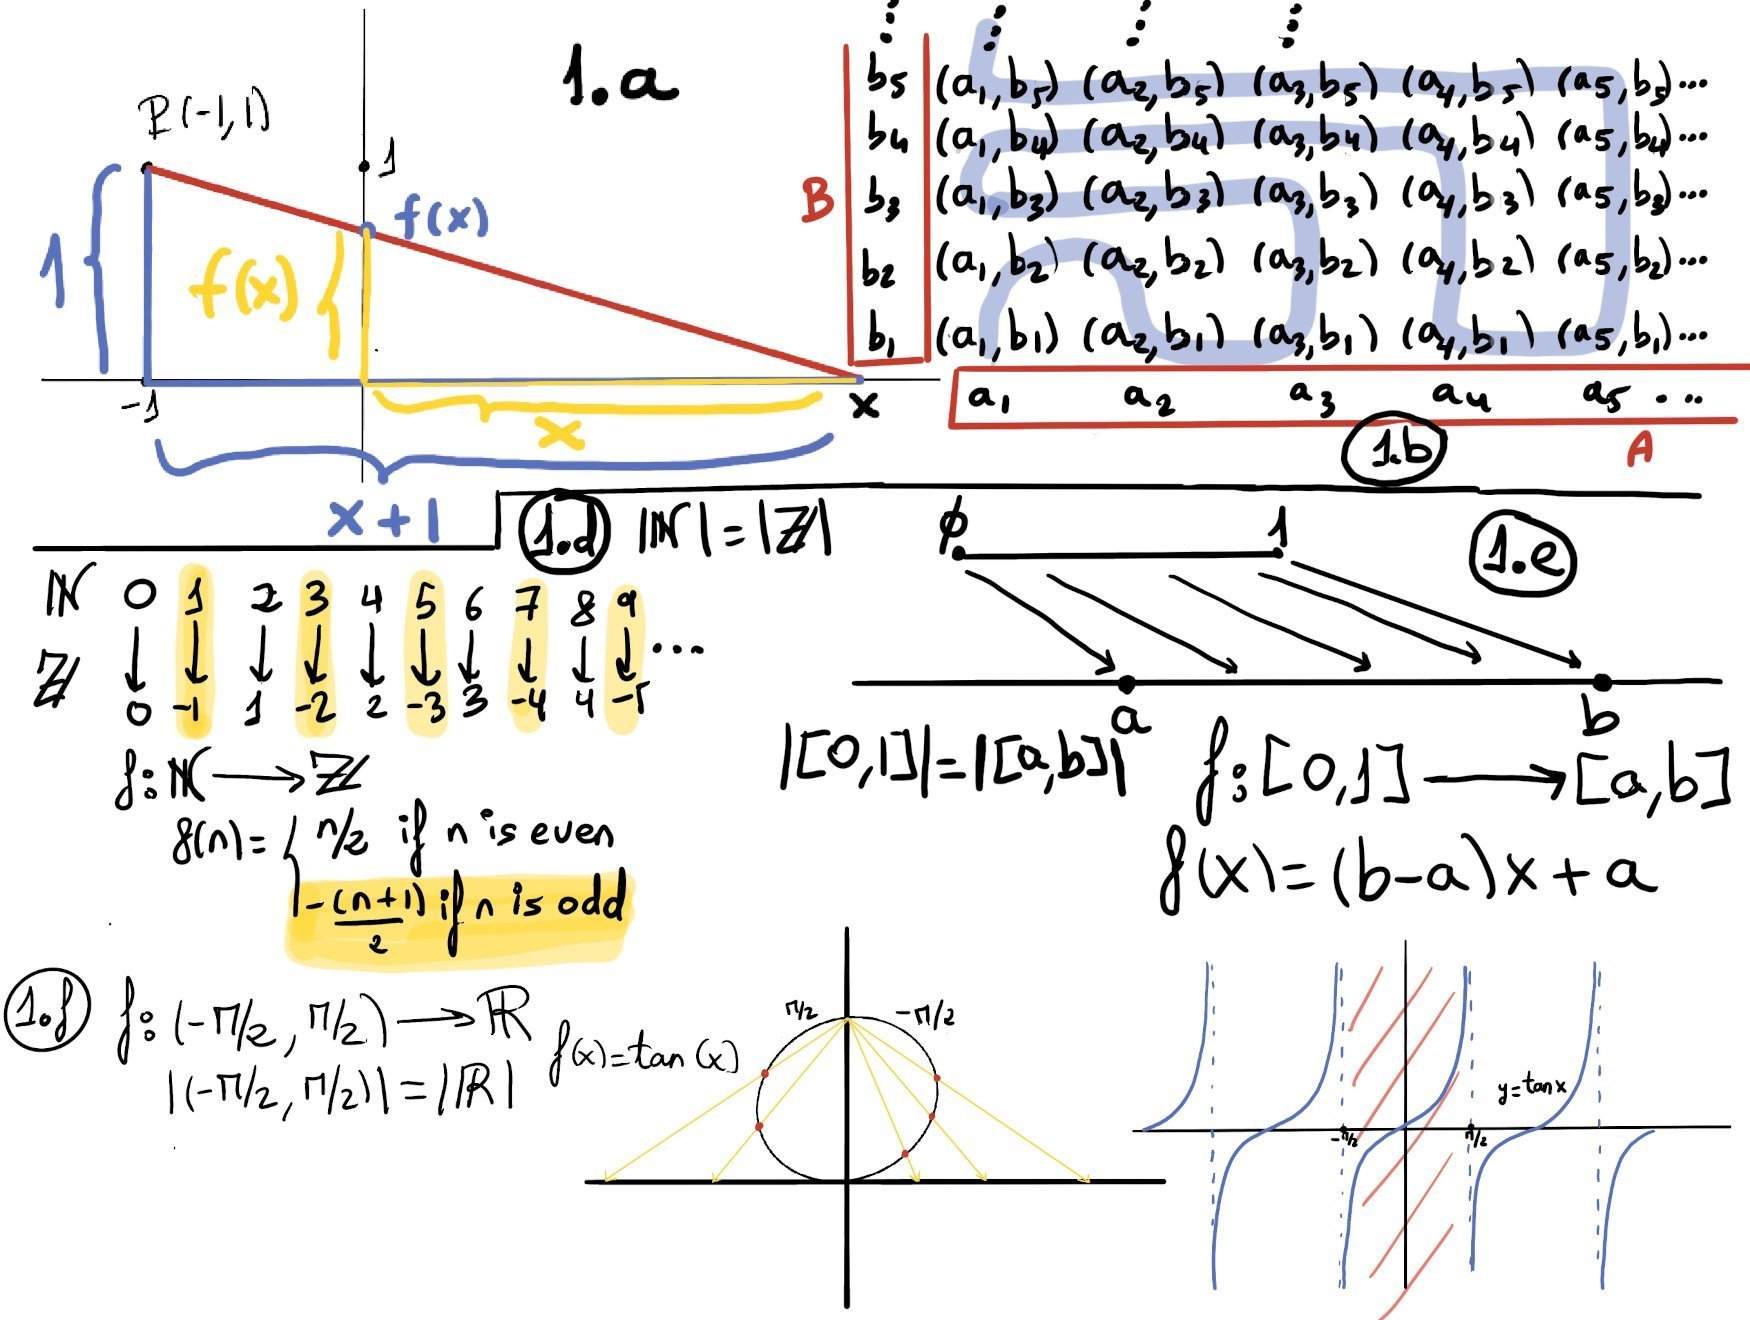 1.a
P(-1,1)
1
1
f(x)
f(x)
-1
x
x
x+1
B
b5 (a1,b5) (a2,b5) (a3,b5) (a4,b5) (a5,b5)...
b4 (a1,b4) (a2,b4) (a3,b4) (a4,b4) (a5,b4)...
b3 (a1,b3) (a2,b3) (a3,b3) (a4,b3) (a5,b3)...
b2 (a1,b2) (a2,b2) (a3,b2) (a4,b2) (a5,b2)...
b1 (a1,b1) (a2,b1) (a3,b1) (a4,b1) (a5,b1)...
a1 a2 a3 a4 a5 ...
1.b
A
1.d |ℕ|=|ℤ|
ℕ 0 1 2 3 4 5 6 7 8 9
...
ℤ 0 -1 1 -2 2 -3 3 -4 4 -5
f: ℕ → ℤ
f(n)= { n/2 if n is even
-(n+1)/2 if n is odd
0 1
1.e
a b
|[0,1]|=|[a,b]|
f: [0,1] → [a,b]
f(x)=(b-a)x+a
1.f
f: (-π/2, π/2) → ℝ
f(x)=tan(x)
|(-π/2, π/2)|=|ℝ|
π/2 -π/2
y=tanx
-π/2 π/2